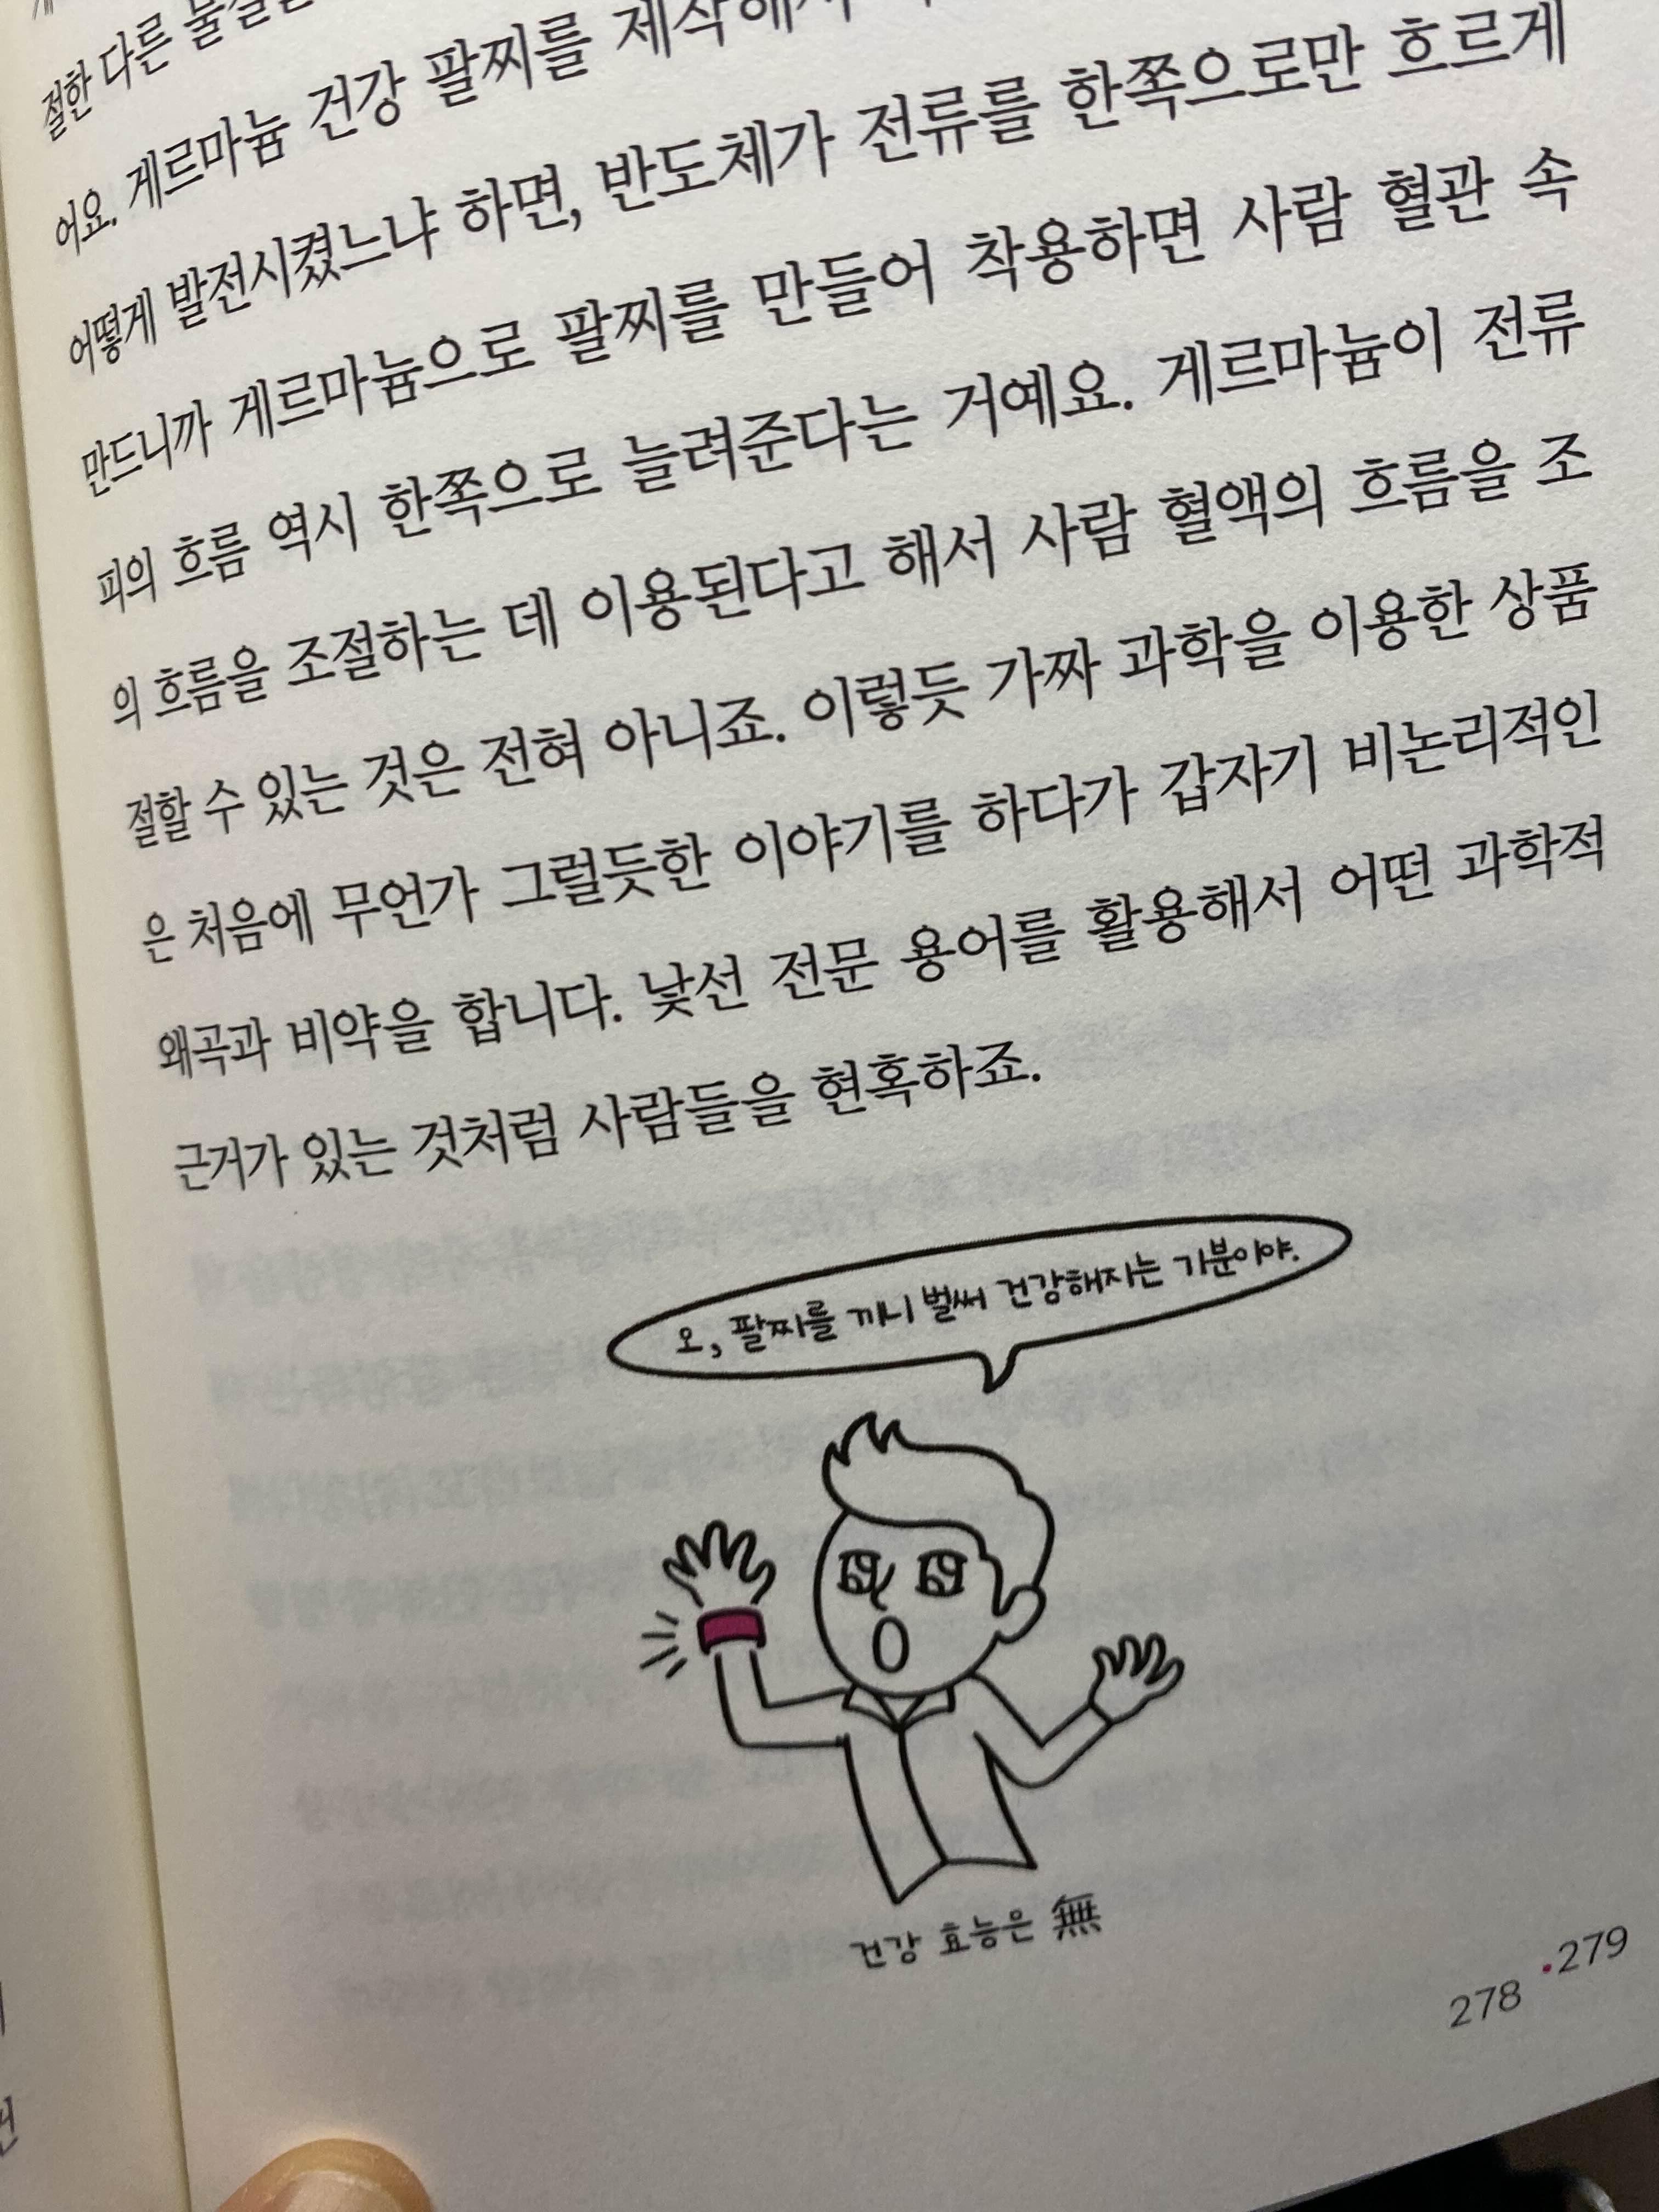 절한 다른
어요. 게르마늄 건강 팔찌를 제작해서
어떻게 발전시켰느냐 하면, 반도체가 전류를 한쪽으로만 흐르게
만드니까 게르마늄으로 팔찌를 만들어 착용하면 사람 혈관 속
피의 흐름 역시 한쪽으로 늘려준다는 거예요. 게르마늄이 전류
의 흐름을 조절하는 데 이용된다고 해서 사람 혈액의 흐름을 조
절할 수 있는 것은 전혀 아니죠. 이렇듯 가짜 과학을 이용한 상품
은 처음에 무언가 그럴듯한 이야기를 하다가 갑자기 비논리적인
왜곡과 비약을 합니다. 낯선 전문 용어를 활용해서 어떤 과학적
근거가 있는 것처럼 사람들을 현혹하죠.
오, 팔찌를 끼니 벌써 건강해지는 기분이야.
건강 효능은 無
278 •279